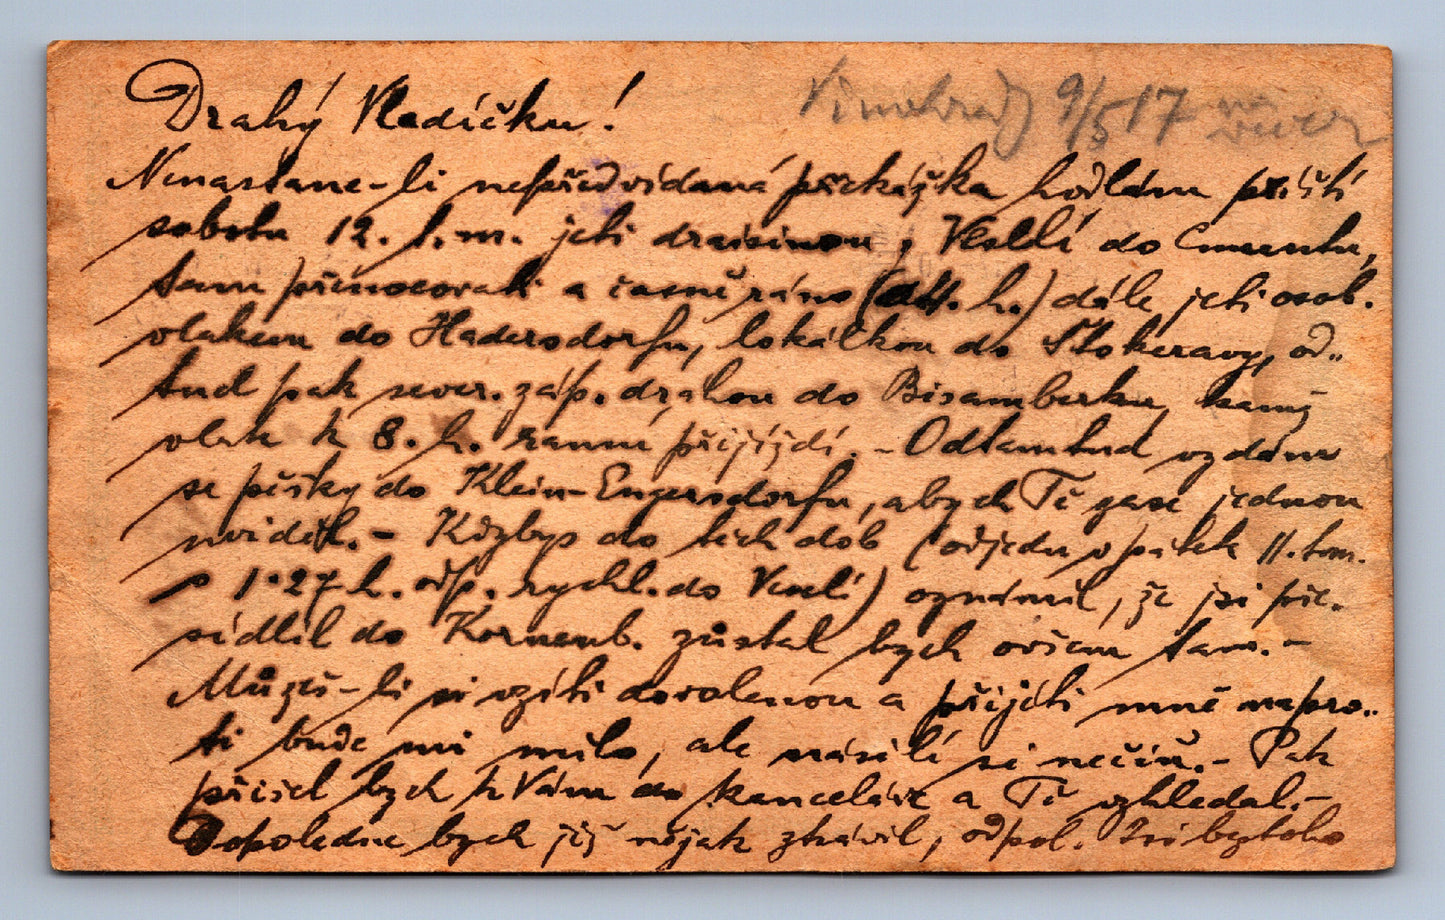 Drahý Vladíčku! 9/5 17
Nenastane-li nepředvídaná překážka hodlám příští
sobotu 12. t. m. jeti draisinou z Veselí do Gmündu,
tam přenocovati a časně ráno (4. h.) dále jeti osob.
vlakem do Hadersdorfu, lokálkou do Stokeravy, od-
tud pak sever. záp. drahou do Bisamberku, kamž
vlak k 8. h. ranní přijíždí. - Odtamtud vydám
se pěšky do Klein-Engersdorfu, abych Tě zase jednou
uviděl. - Kdybys do těch dob (odjedu v pátek 11. tom.
o 1·27 h. odp. rychl. do Veselí) oznámil, že jsi pře-
sídlil do Korneub. zůstal bych ovšem tam. -
Můžeš-li si vzíti dovolenou a přijeti mně napro-
ti bude mi milo, ale násilí si nečiň. - Pak
přišel bych k Vám do kanceláře a Tě vyhledal. -
Dopoledne bych již nějak ztrávil, odpol. Ty bytoho